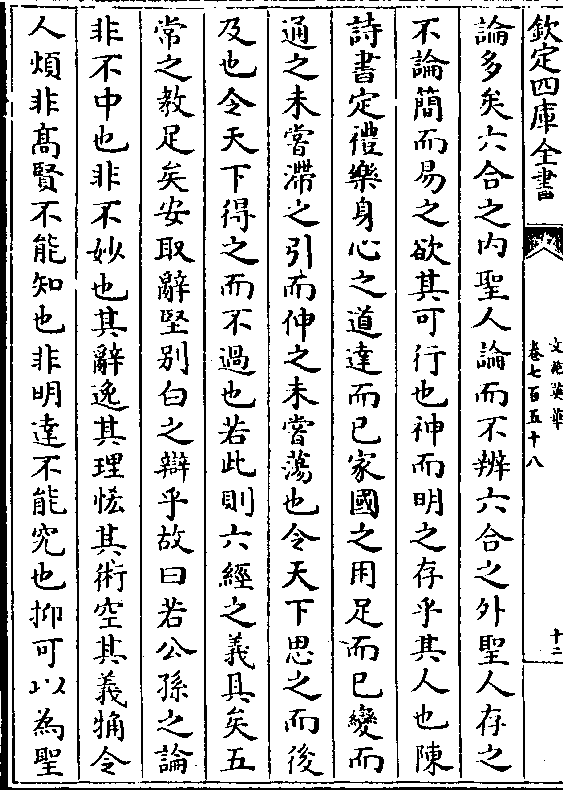 欽定四庫全書
文苑英華
卷七百五十八
十二
論多矣六合之内聖人論而不辨六合之外聖人存之
不論簡而易之欲其可行也神而明之存乎其人也陳
詩書定禮樂身心之道達而已家國之用足而已變而
通之未嘗滯之引而伸之未嘗蕩也令天下思之而後
及也令天下得之而不過也若此則六經之義具矣五
常之教足矣安取辭堅别白之辯乎故曰若公孫之論
非不中也非不妙也其辭逸其理恠其術空其義牅令
人煩非髙賢不能知也非明達不能究也抑可以為聖